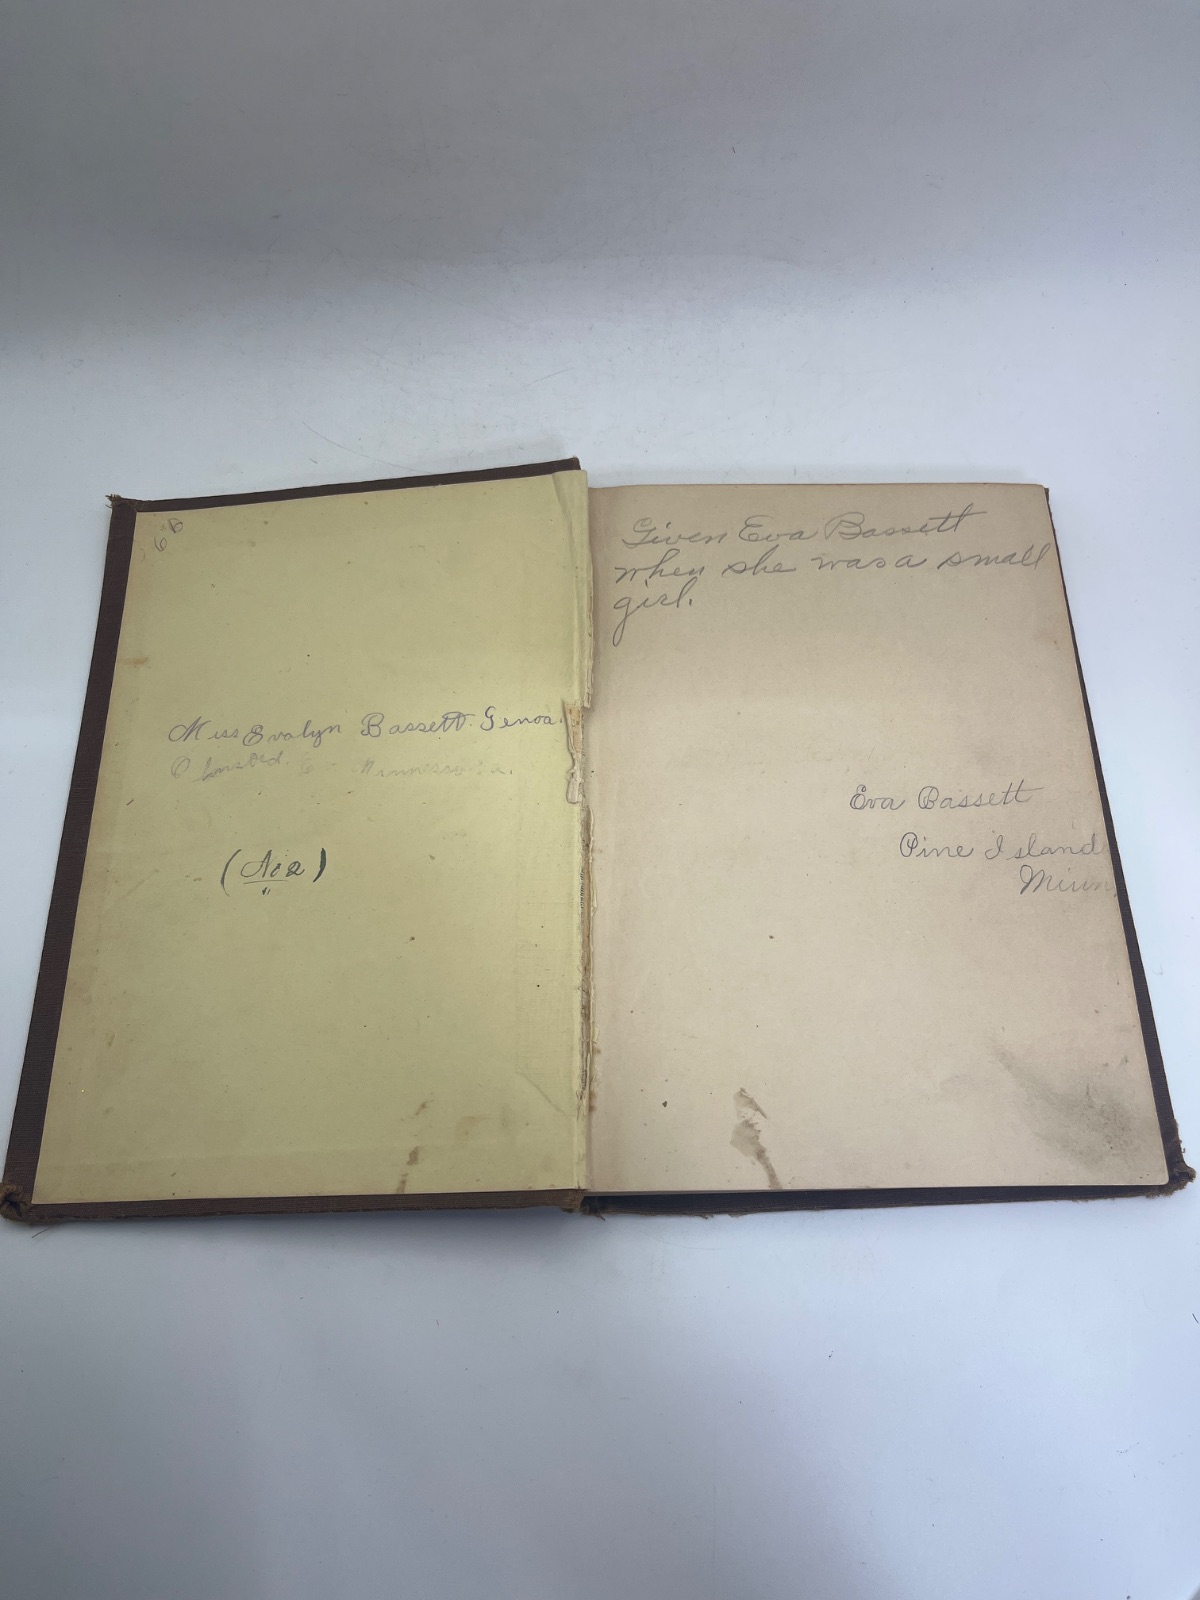 Miss Evalyn Bassett. Genoa.
Olmsted. Co. Minnesota.
(No 2)
Given Eva Bassett
when she was a small
girl.
Eva Bassett
Pine Island
Minn